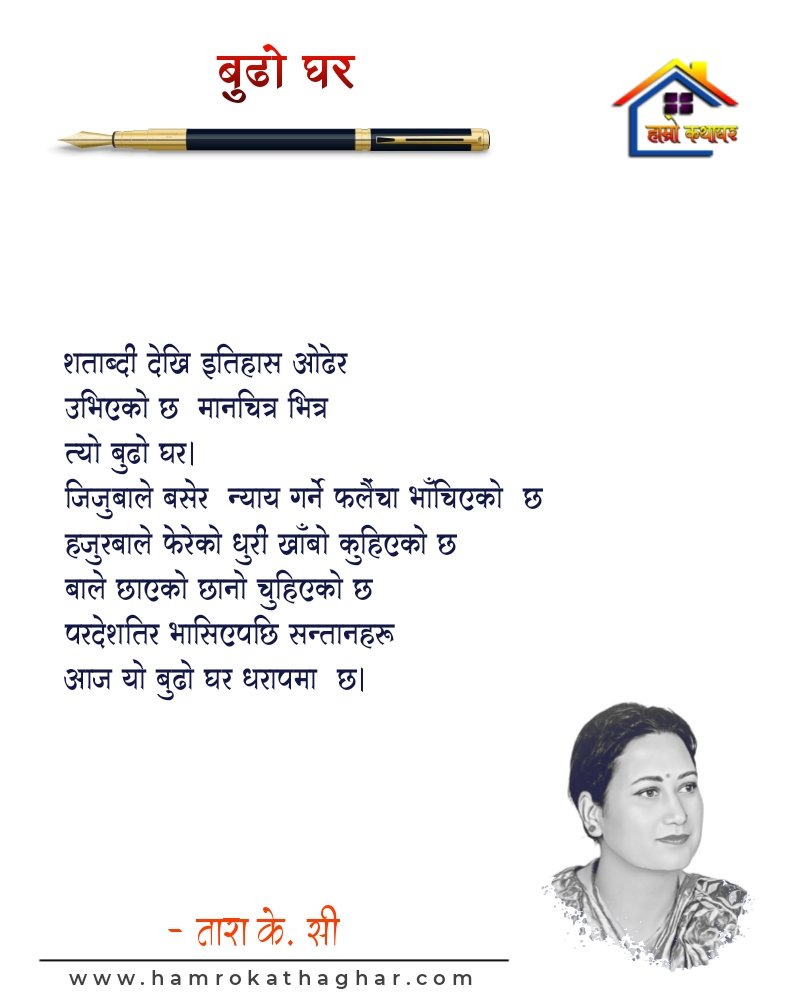 बुढो घर
हाम्रो कथाघर
शताब्दी देखि इतिहास ओढेर
उभिएको छ मानचित्र भित्र
त्यो बुढो घर।
जिजुबाले बसेर न्याय गर्ने फलैंचा भाँचिएको छ
हजुरबाले फेरेको धुरी खाँबो कुहिएको छ
बाले छाएको छानो चुहिएको छ
परदेशतिर भासिएपछि सन्तानहरू
आज यो बुढो घर धरापमा छ।
- तारा के. सी
www.hamrokathaghar.com